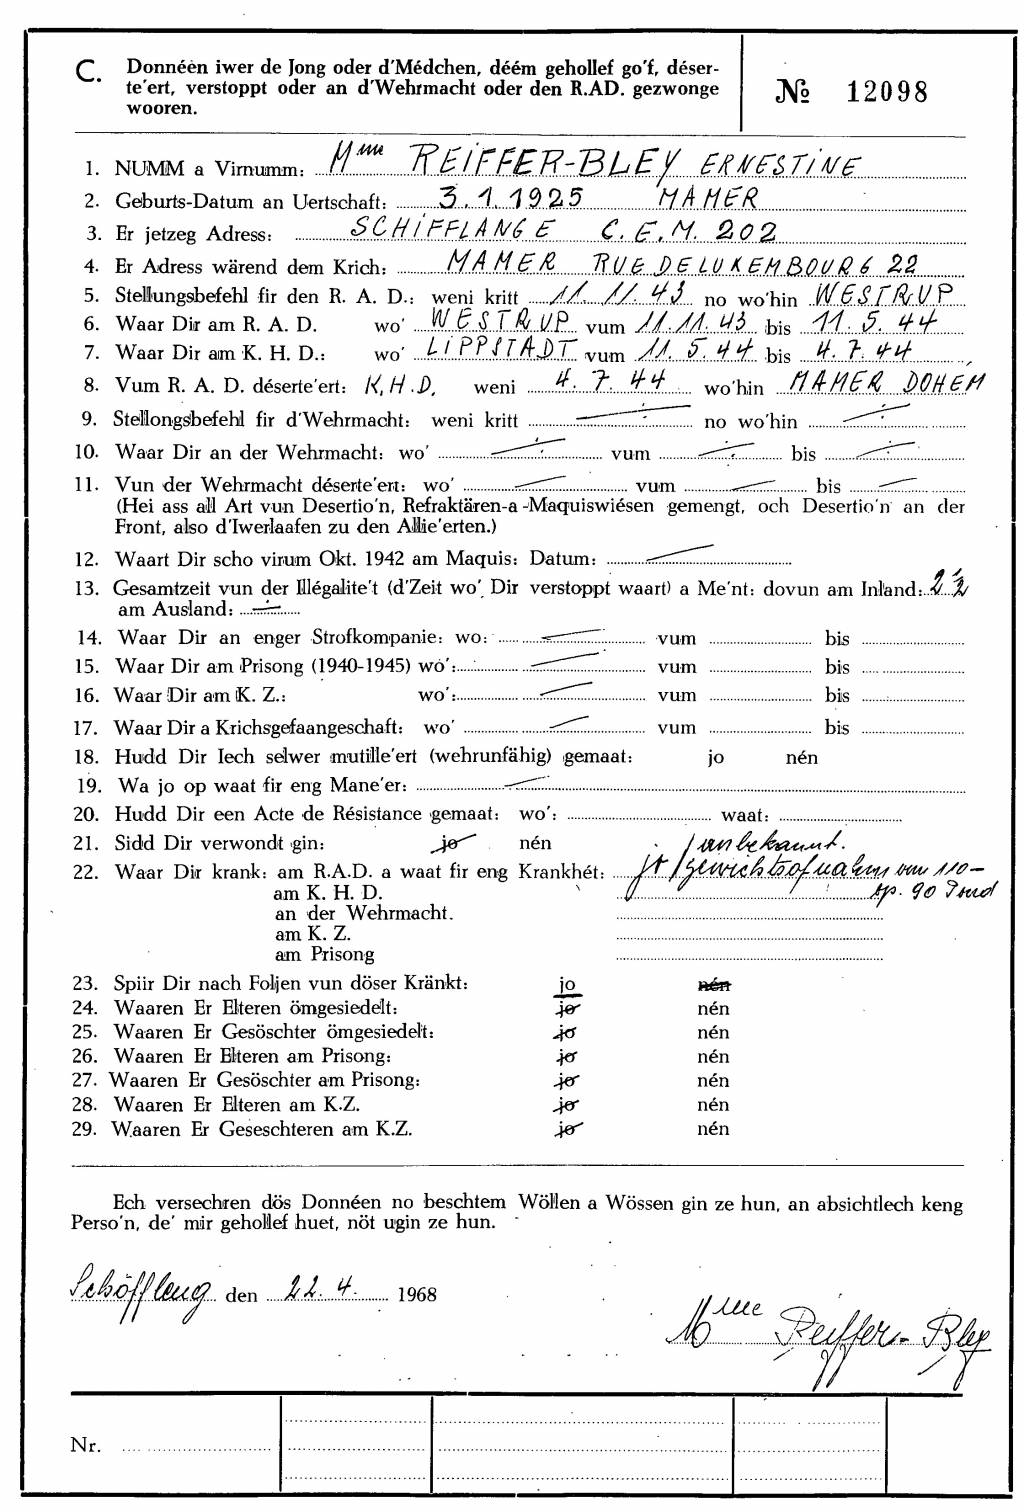 C. Donnéen iwer de Jong oder d'Médchen, déém gehollef go'f, déser-
te'ert, verstoppt oder an d'Wehrmacht oder den R.AD. gezwonge
wooren.
№ 12098
1. NUMM a Virnumm: Mme REIFFER-BLEY ERNESTINE
2. Geburts-Datum an Uertschaft: 3.1.1925 MAMER
3. Er jetzeg Adress: SCHIFFLANGE C.E.M. 202
4. Er Adress wärend dem Krich: MAMER RUE DE LUXEMBOURG 22
5. Stellungsbefehl fir den R. A. D.: weni kritt 11. 11. 43 no wo'hin WESTRUP
6. Waar Dir am R. A. D. wo' WESTRUP vum 11.11.43 bis 11.5.44
7. Waar Dir am K. H. D.: wo' LIPPSTADT vum 11.5.44 bis 4.7.44
8. Vum R. A. D. déserte'ert: K.H.D. weni 4.7.44 wo'hin MAMER DOHEM
9. Stellongsbefehl fir d'Wehrmacht: weni kritt no wo'hin
10. Waar Dir an der Wehrmacht: wo' vum bis
11. Vun der Wehrmacht déserte'ert: wo' vum bis
(Hei ass all Art vun Desertio'n, Refraktären-a-Maquiswiésen gemengt, och Desertio'n an der
Front, also d'Iwerlaafen zu den Allie'erten.)
12. Waart Dir scho virum Okt. 1942 am Maquis: Datum:
13. Gesamtzeit vun der Illégalite't (d'Zeit wo' Dir verstoppt waart) a Me'nt: dovun am Inland: 2 1/2
am Ausland:
14. Waar Dir an enger Strofkompanie: wo: vum bis
15. Waar Dir am Prisong (1940-1945) wo': vum bis
16. Waar Dir am K. Z.: wo': vum bis
17. Waar Dir a Krichsgefaangeschaft: wo' vum bis
18. Hudd Dir Iech selwer mutille'ert (wehrunfähig) gemaat: jo nén
19. Wa jo op waat fir eng Mane'er:
20. Hudd Dir een Acte de Résistance gemaat: wo': waat:
21. Sidd Dir verwondt gin: jo nén unbekannt.
22. Waar Dir krank: am R.A.D. a waat fir eng Krankhét: jo / gewichtsofnahm vun 110-
am K. H. D. op. 90 Pond
an der Wehrmacht.
am K. Z.
am Prisong
23. Spiir Dir nach Foljen vun döser Kränkt: jo nén
24. Waaren Er Elteren ömgesiedelt: jo nén
25. Waaren Er Gesöschter ömgesiedelt: jo nén
26. Waaren Er Elteren am Prisong: jo nén
27. Waaren Er Gesöschter am Prisong: jo nén
28. Waaren Er Elteren am K.Z. jo nén
29. Waaren Er Geseschteren am K.Z. jo nén
Ech versechren dös Donnéen no beschtem Wöllen a Wössen gin ze hun, an absichtlech keng
Perso'n, de' mir gehollef huet, nöt ugin ze hun.
Schöffleng den 22. 4. 1968
Mme Reiffer-Bley
Nr.